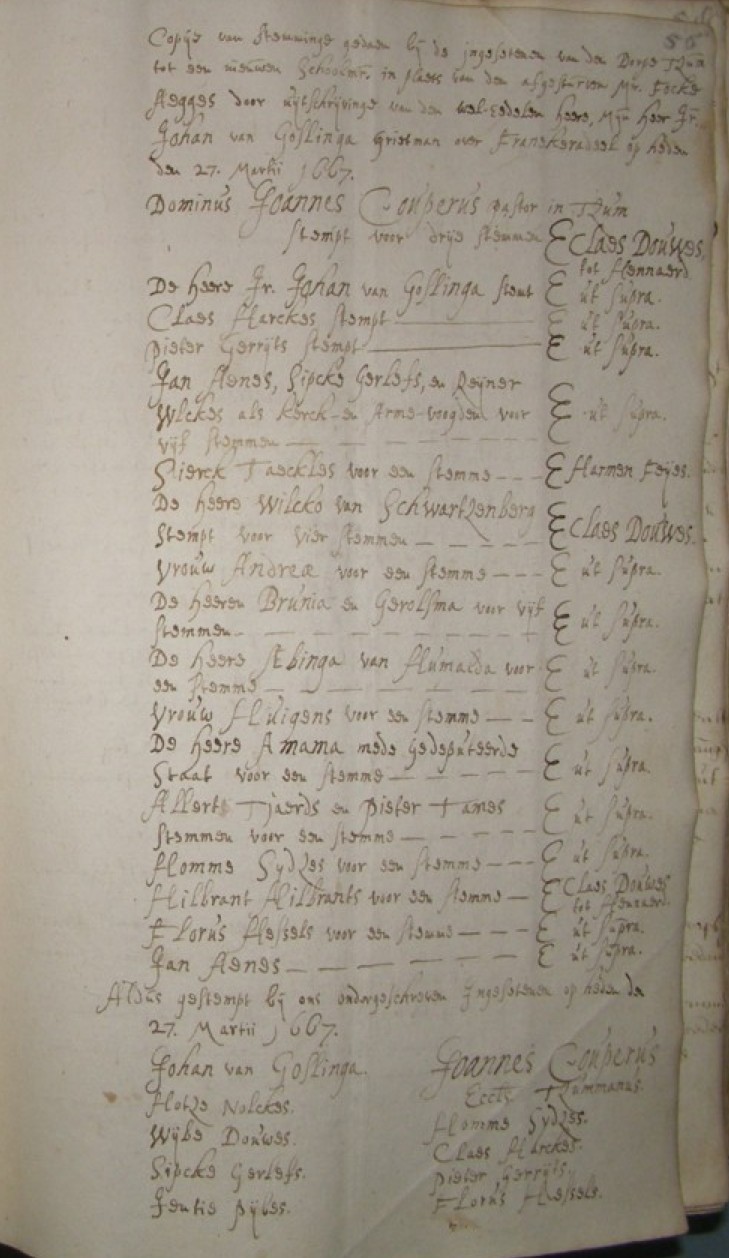 56
Copije van stemminge gedaen bij de jngesetenen van den Dorpe Tzum
tot een nieuwen Schoolmr. in plaets van den afgesturven Mr. Focke
Aegges door uijtschrijvinge van den wel-Eedelen heere, Mijn Heer Jr.
Johan van Goslinga Grietman over Franekeradeel op heden
den 27. Martii 1667.
Dominus Joannes Couperus pastor in Tzum
stempt voor drije stemmen Claes Douwes,
tot Hennaerd.
De heere Jr. Johan van Goslinga stemt ut supra.
Claes Harckes stempt ut supra.
Pieter Gerrijts stempt ut supra.
Jan Aenes, Sipcke Gerlefs, en Reijner
Wlckes als kerck-en Arme-voogden voor ut supra.
vijf stemmen
Sierck Taeckles voor een stemme Harmen Feijes.
De heere Wilcko van Schwartzenberg
stempt voor vier stemmen Claes Douwes.
Vrouw Andreæ voor een stemme ut supra.
De heeren Brunia en Gerolsma voor vijf ut supra.
stemmen
De heere Ebinga van Humalda voor ut supra.
een stemme
Vrouw Huigens voor een stemme ut supra.
De heere Amama mede gedeputeerde
Staat voor een stemme ut supra.
Allert Tjaerds en Pieter Tames ut supra.
stemmen voor een stemme
Homme Sydzes voor een stemme ut supra.
Hilbrant Hilbrants voor een stemme Claes Douwes
tot Hennaerd.
Florus Hessels voor een stemme ut supra.
Jan Aenes ut supra.
Aldus gestempt bij ons ondergeschreven Jngesetenen op heden den
27. Martii 1667.
Johan van Goslinga. Joannes Couperus
Eccl. Tzummanus.
Hotze Nolckes. Homme Sydzes.
Wijbe Douwes. Claes Harckes.
Sipcke Gerlefs. Pieter Gerrijts.
Jentie Pijbes. Florus Hessels.